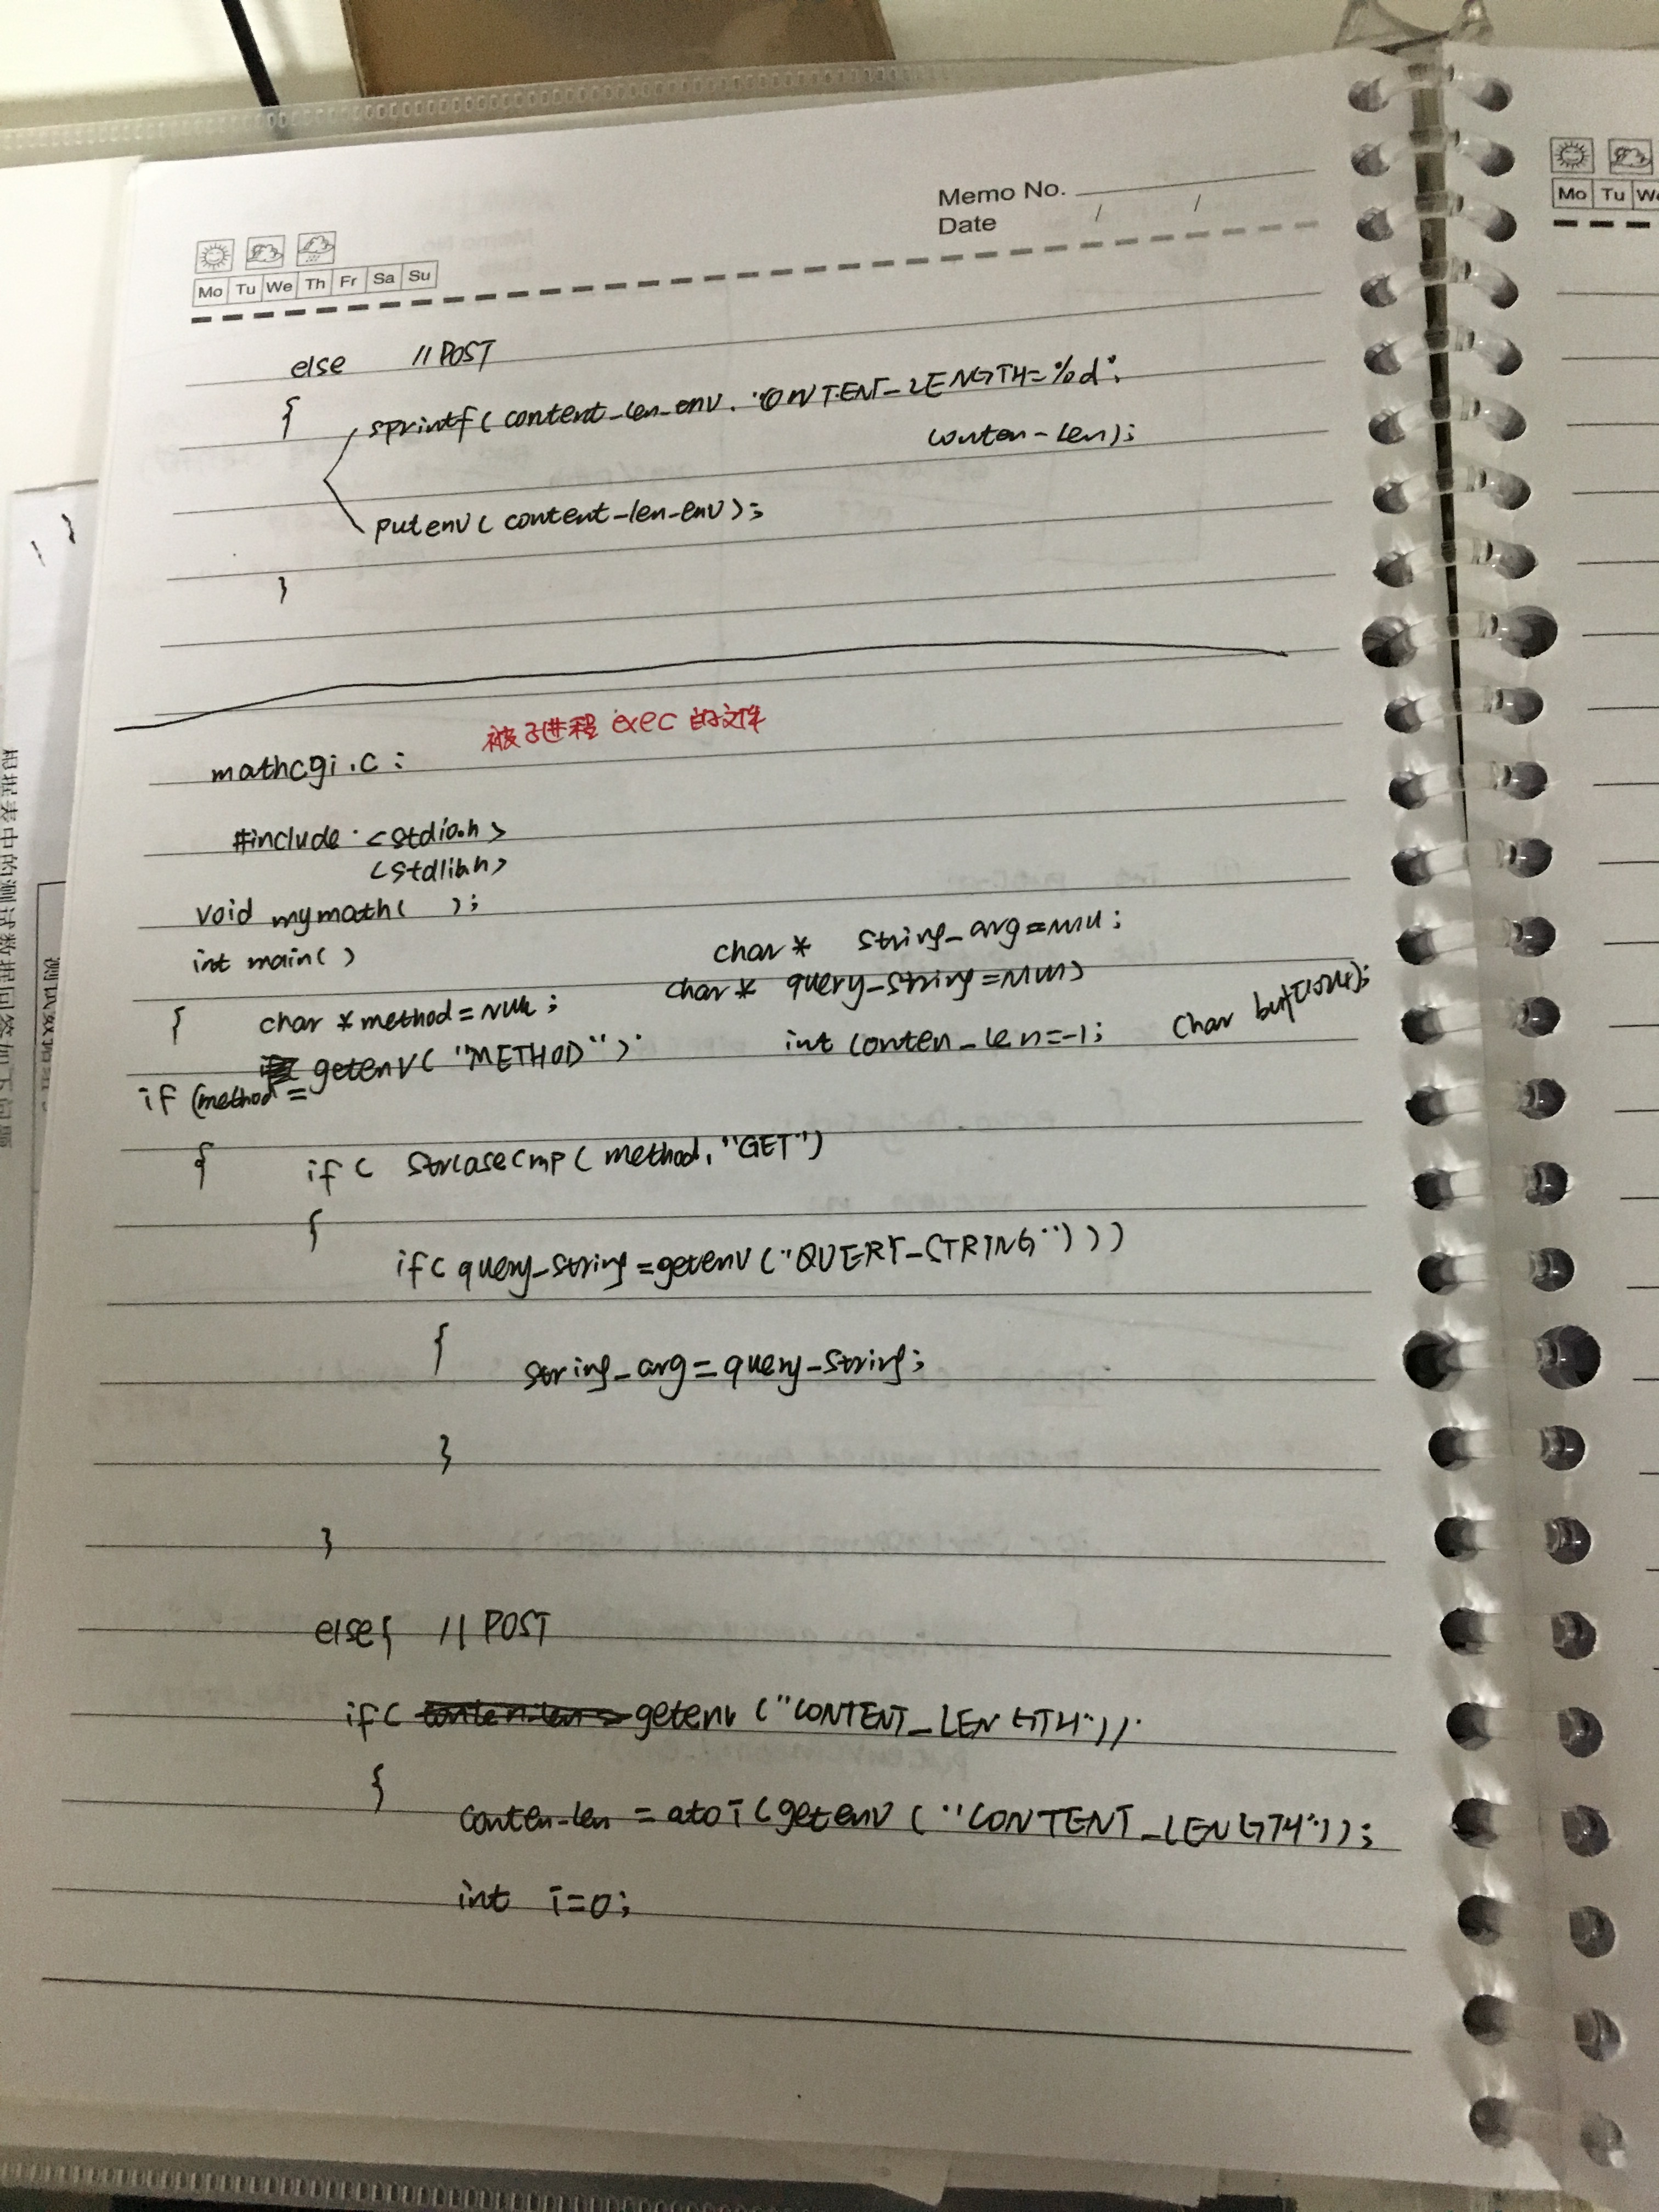 Memo No.
Date / /
Mo Tu We Th Fr Sa Su
Mo Tu We
else //POST
{
sprintf( content_len_env, "CONTENT_LENGTH=%d",
conten-len);
putenv( content-len-env);
}
被子进程 exec 的文件
mathcgi.c:
#include <stdio.h>
<stdlib.h>
void mymath( );
int main( )
char* string_arg=NULL;
{ char *method=NULL;
char* query_string=NULL;
int conten_len=-1; char buf[1024];
getenv( "METHOD")
if (method =
{ if( strcasecmp( method, "GET")
{
if( query_string=getenv("QUERY_STRING")))
{
string_arg=query_string;
}
}
else{ //POST
if( getenv ("CONTENT_LENGTH"))
{
conten-len = atoi(getenv ("CONTENT_LENGTH"));
int i=0;
根据表中的测试数据回答如下问题